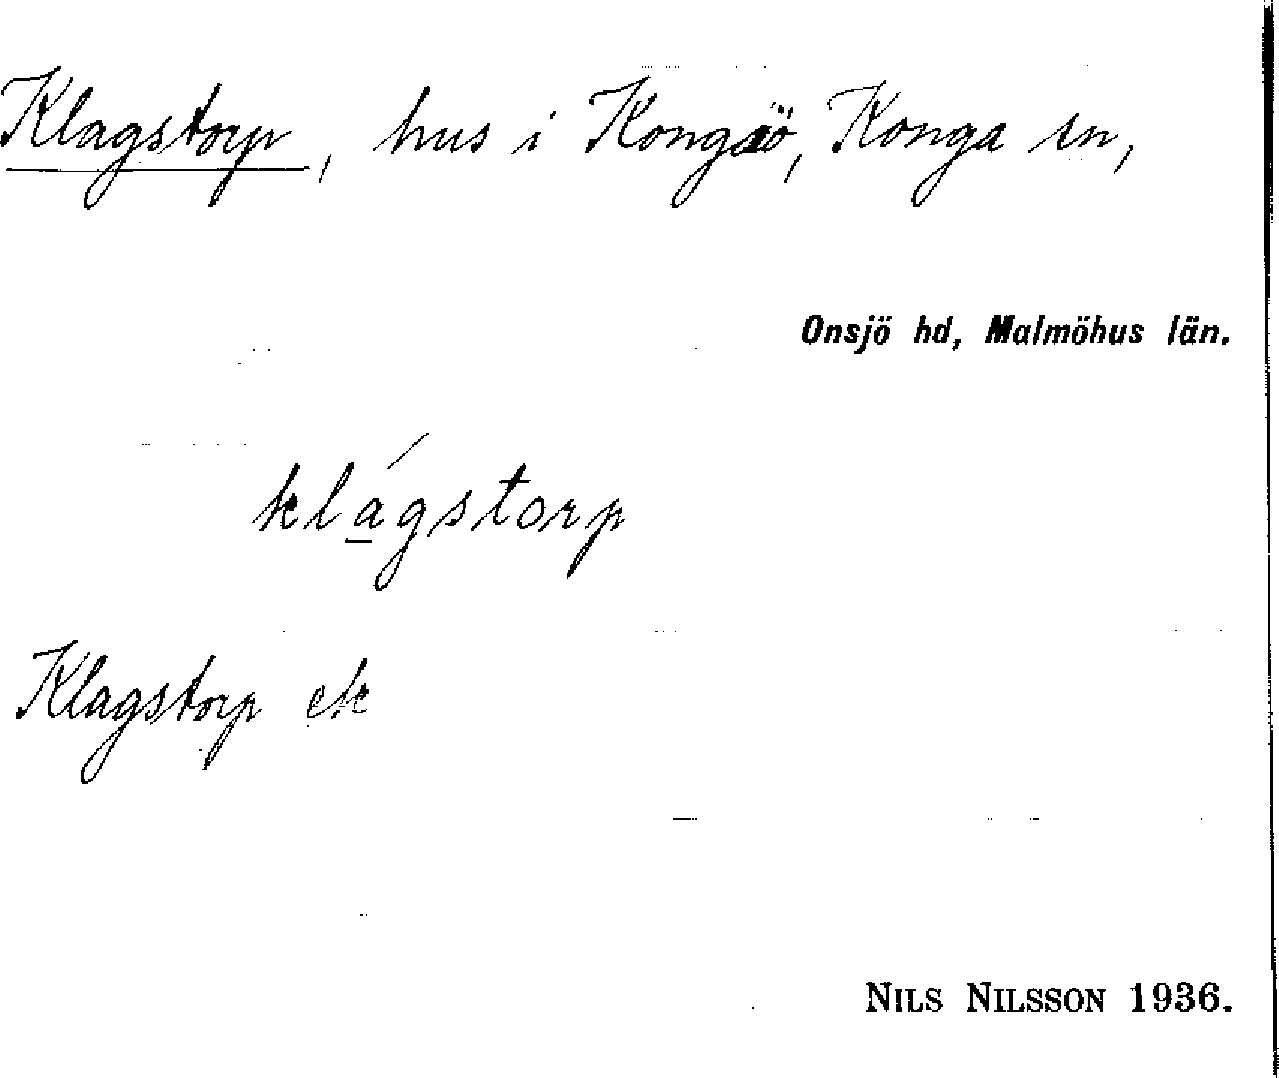 Klagstorp, hus i Kongaö, Konga sn,
Onsjö hd, Malmöhus län.
klágstorp
Klagstorp ek
NILS NILSSON 1936.